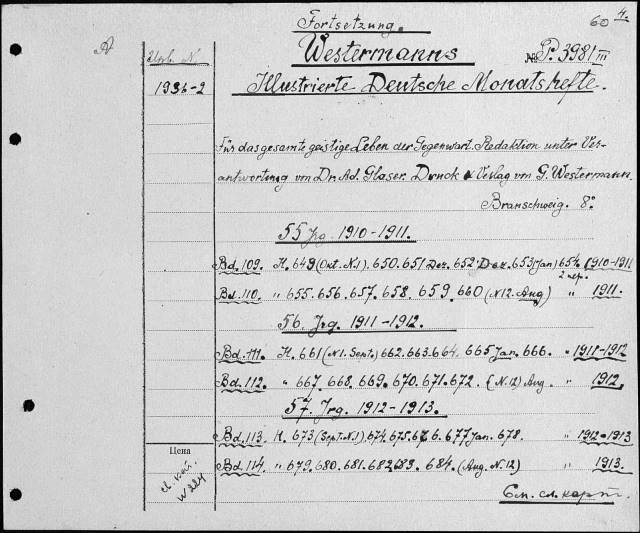 Fortsetzung.
60 4.
A
Westermanns
№ P. 3981 III
Illustrierte Deutsche Monatshefte.
1936-2
Für das gesamte geistige Leben der Gegenwart. Redaktion unter Ver-
antwortung von Dr. Ad. Glaser. Druck & Verlag von G. Westermann.
Branschweig. 8°
55 Jrg. 1910-1911.
Bd. 109. H. 649 (Okt. N.1). 650. 651 Dez. 652 Dez. 653 (Jan) 654. 1910-1911
2 пер.
Bd. 110. " 655. 656. 657. 658. 659. 660 (N 12. Aug) " 1911.
56. Jrg. 1911-1912.
Bd. 111. H. 661 (N 1. Sept.) 662. 663. 664. 665 Jan. 666. " 1911-1912
Bd. 112. " 667. 668. 669. 670. 671. 672. (N. 12) Aug. " 1912.
57. Jrg. 1912-1913.
Bd. 113. H. 673 (Sept. N.1) 674. 675. 676. 677 Jan. 678. " 1912-1913
Bd. 114. " 679. 680. 681. 682. 683. 684. (Aug. N. 12) " 1913.
Цена
См. сл. карт.